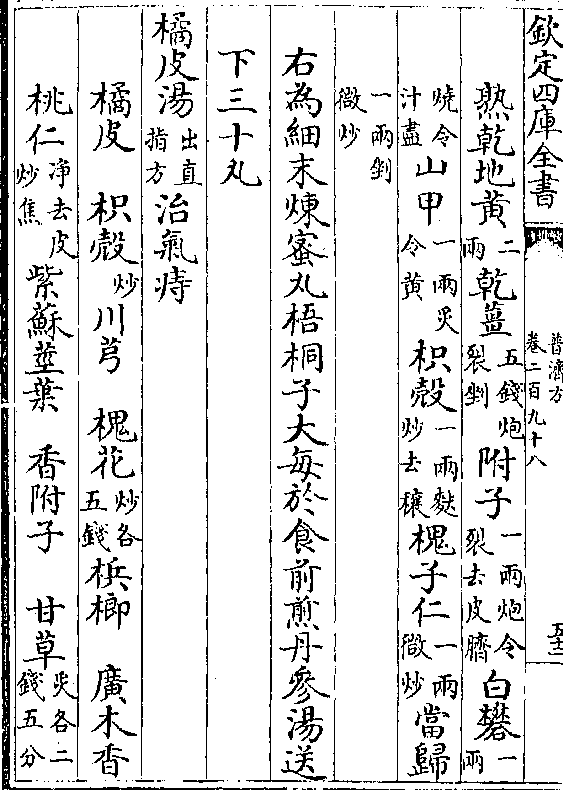 欽定四庫全書
普濟方
卷二百九十八
五十二
熟乾地黃二兩乾薑五錢炮裂剉附子一兩炮令裂去皮臍白礬一兩
燒令汁盡山甲一兩炙令黃枳殼一兩麩炒去穰槐子仁一兩微炒當歸
一兩剉微炒
右為細末煉蜜丸梧桐子大每於食前煎丹參湯送
下三十丸
橘皮湯出直指方治氣痔
橘皮 枳殼炒川芎 槐花炒各五錢檳榔 廣木香
桃仁净去皮炒焦紫蘇莖葉 香附子 甘草炙各二錢五分